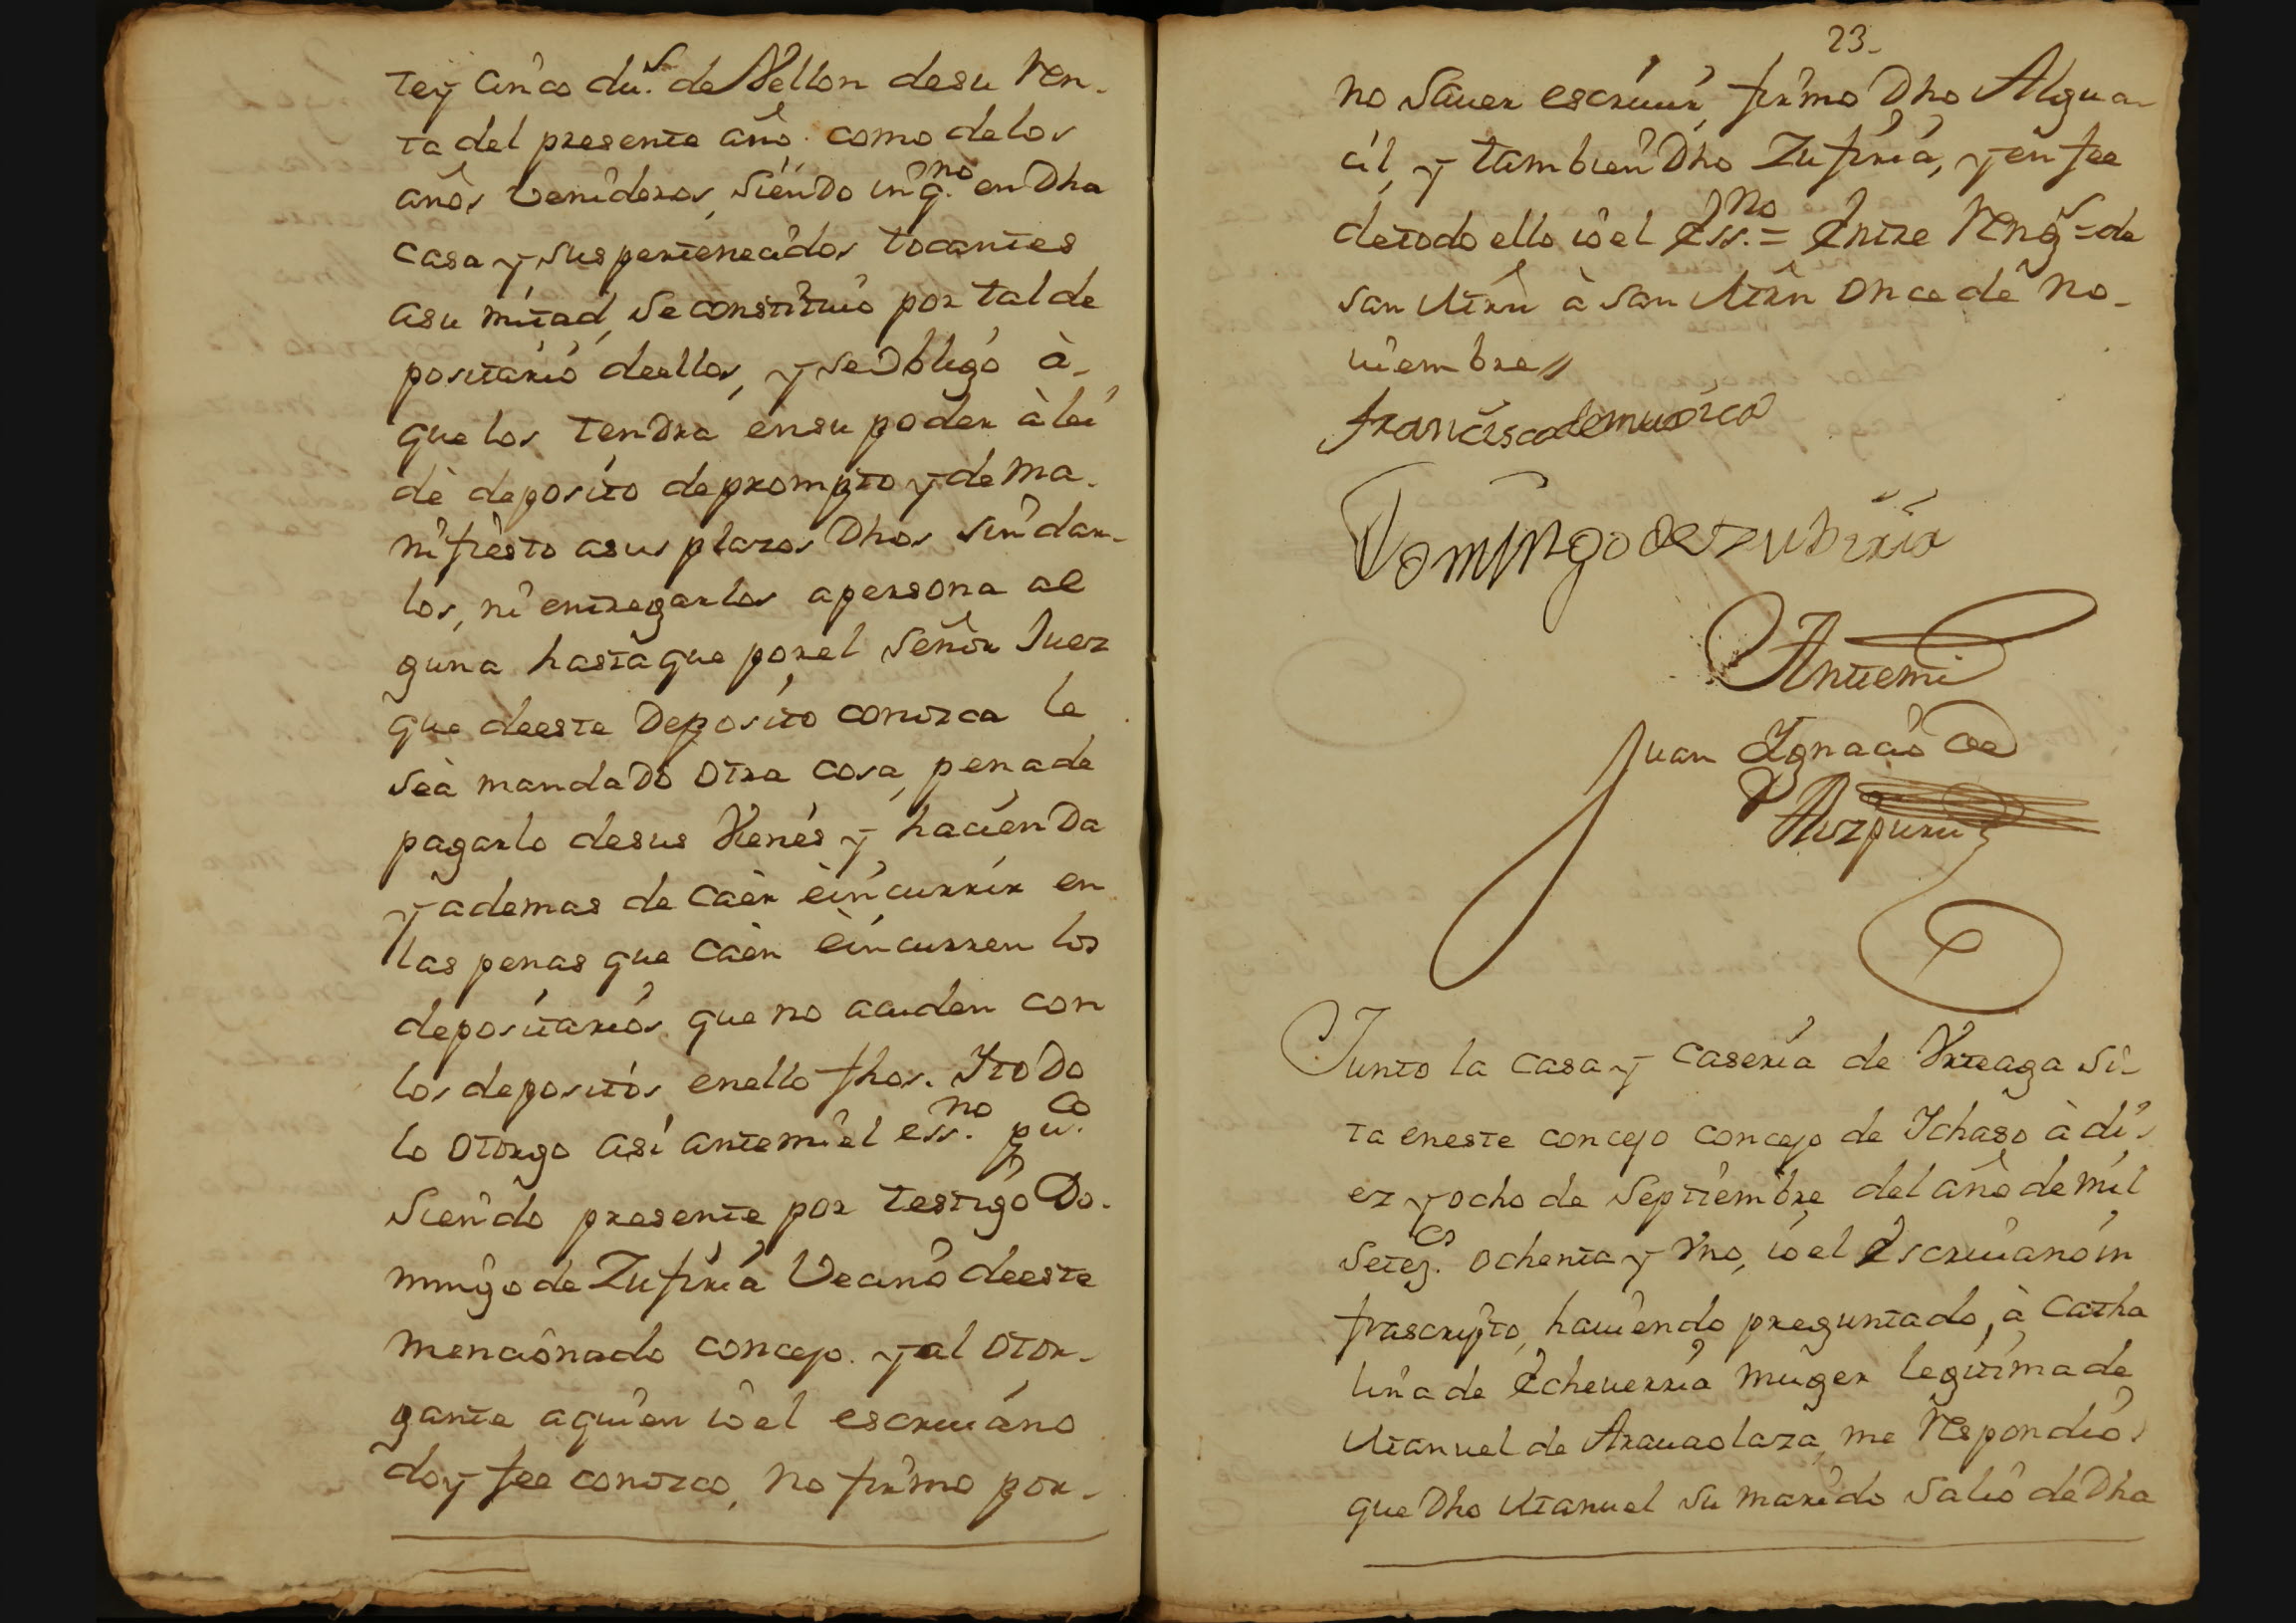 tey cinco du.s de Vellon desu ren-
ta del presente año como delos
años venideros, siendo inq.no en Dha
casa y sus pertenecidos tocantes
asu mitad, se constituió por tal de
positarió deellos, y se Obligó à-
que los tendra ensu poder à lei
dè deposito deprompto y de ma-
nifiesto asus plazos Dhos sin dar-
los, ni entregarlos apersona al
guna hasta que porel Señor Juez
que deeste Deposito conozca le
seà mandado otra cosa, penade
pagarlo desus Vienes y hacienda
y ademas de caèr èincurrir en
las penas que caèn èincurren los
depositariós que no acuden con
los depositos enello fhos. Ytodo
lo otorgo asi antemi el ess.no pu.co
siendo presente por testigo Do-
mingo de Zufiria Vecino deeste
mencionado concejo. y al otor-
gante aquien ió el escriuáno
doy fee conozco, no firmo por-
23-
no Sauer escriuir, firmo Dho Algua-
cil, y tambien Dho Zufiria, y en fee
detodo ello ió el Ess.no = Entre reng.s = de
san Mrñ à san Mrñ once de no-
uiembre //
francisco de muxica
Domingo de zubiria
Antemi
Juan Ygnacio de
Aizpuru
Junto la casa y caseria de Vrteaga si-
ta eneste concejo concejo de Ychaso à di-
ez y ocho de Septiembre del año de mil
setez.cs ochenta y Vno, ió el Escriuano in
frascripto, hauiendo preguntado, à Catha
lina de Echeuerria muger legitima de
Manuel de Arauaolaza, me respondió
que Dho Manuel su marido salió de Dha